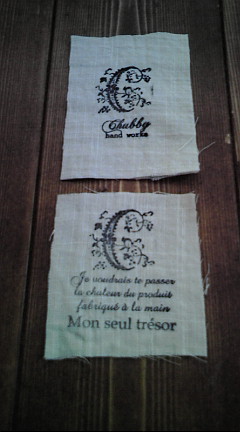 C
Chubby
hand works
C
Je voudrais te passer
la chaleur du produit
fabriqué à la main
Mon seul trésor